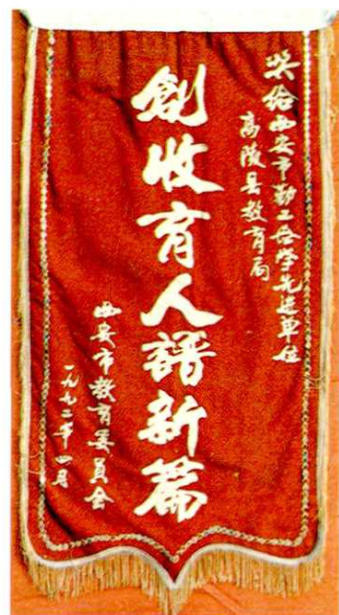 奖给西安市勤工俭学先进单位
高陵县教育局
創收育人譜新篇
西安市教育委員会
一九九二年四月